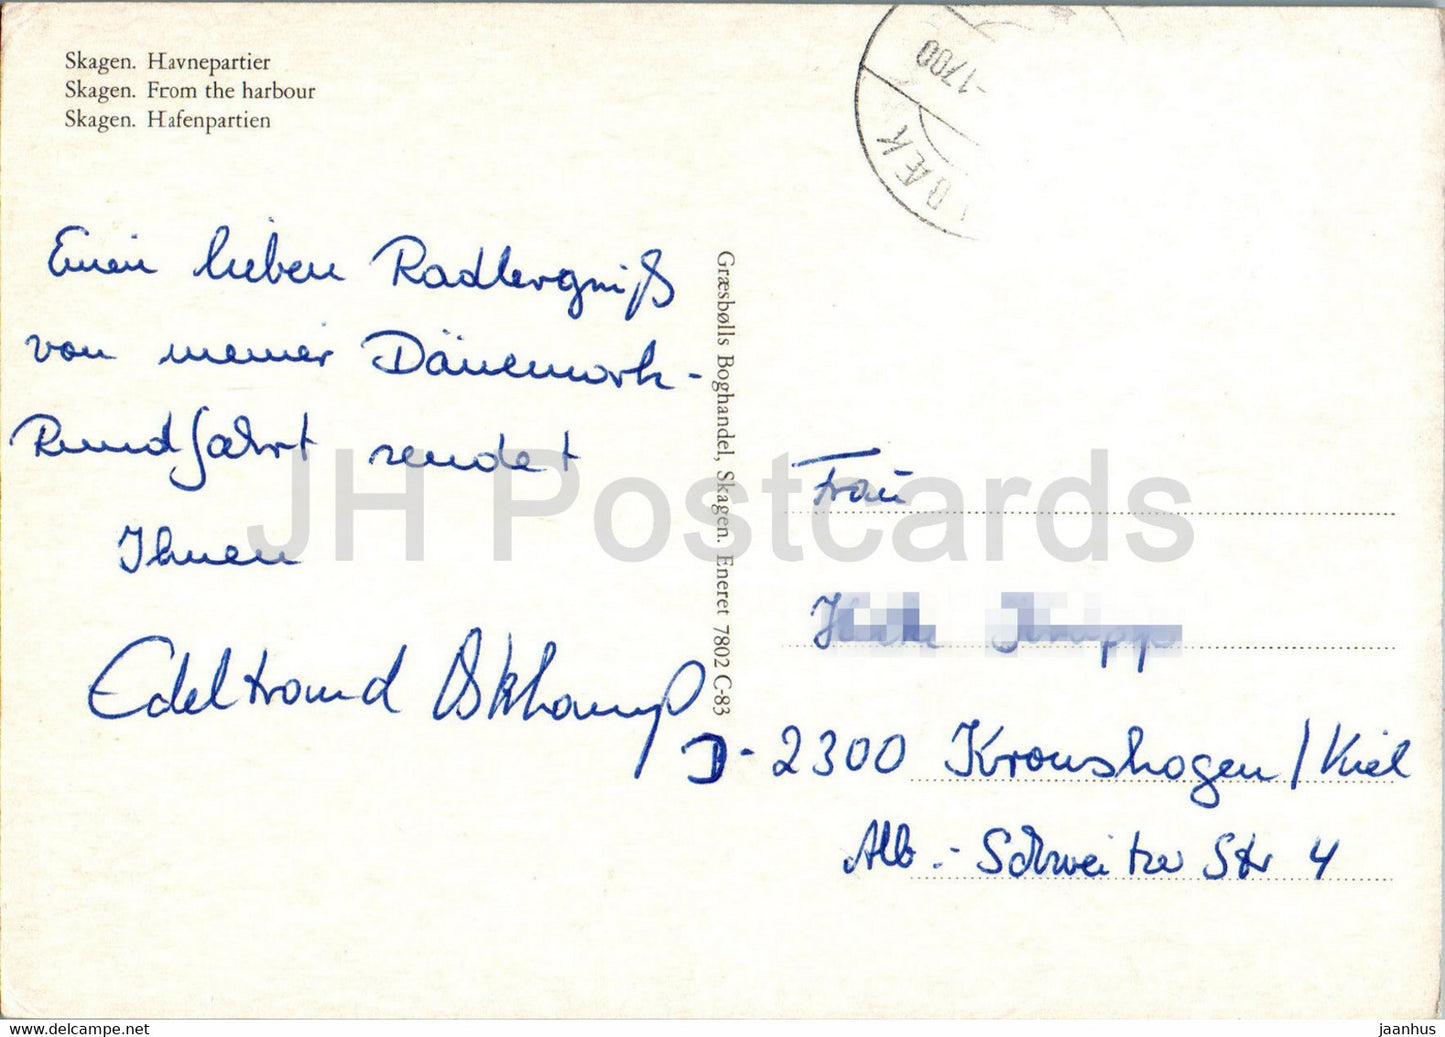 Skagen. Havnepartier
Skagen. From the harbour
Skagen. Hafenpartien
-1700
BÆK
Einen lieben Radlergruß
von meiner Dänemark-
Rundfahrt sendet
Ihnen
Edeltraud
Græsbølls Boghandel, Skagen. Eneret 7802 C-83
Frau
D-2300 Kronshagen/Kiel
Alb.-Schweitzer Str 4
JH Postcards
delcampe.net
jaanhus